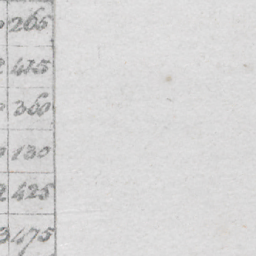 265
425
360
130
2 425
3 475